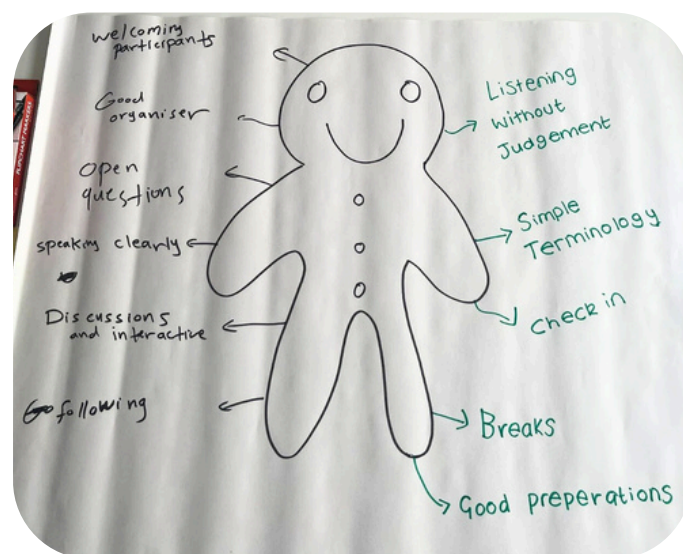 welcoming
participants
Good
organiser
Open
questions
speaking clearly
Discussions
and interactive
following
Listening
without
Judgement
Simple
Terminology
Check in
Breaks
Good preperations